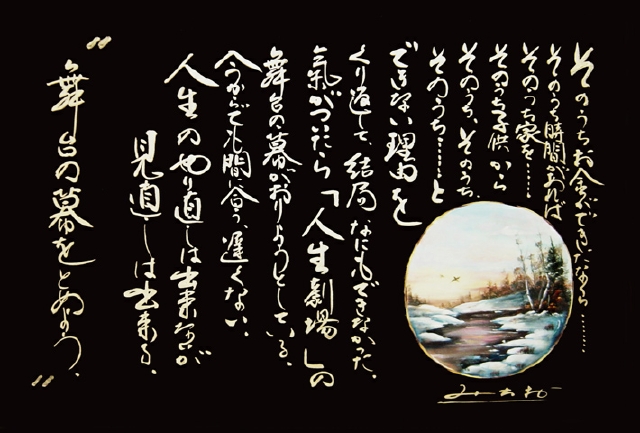 そのうちお金ができたなら………
そのうち時間があれば
そのうち家を……
そのうち子供から
そのうち、そのうち、
そのうち……と
できない理由を
くり返して、結局なにもできなかった、
氣がついたら「人生劇場」の
舞台の幕がおりようとしている、
今からでも間に合う、遅くない、
人生のやり直しは出来ないが
見直しは出来る、
"舞台の幕をとめよう、"